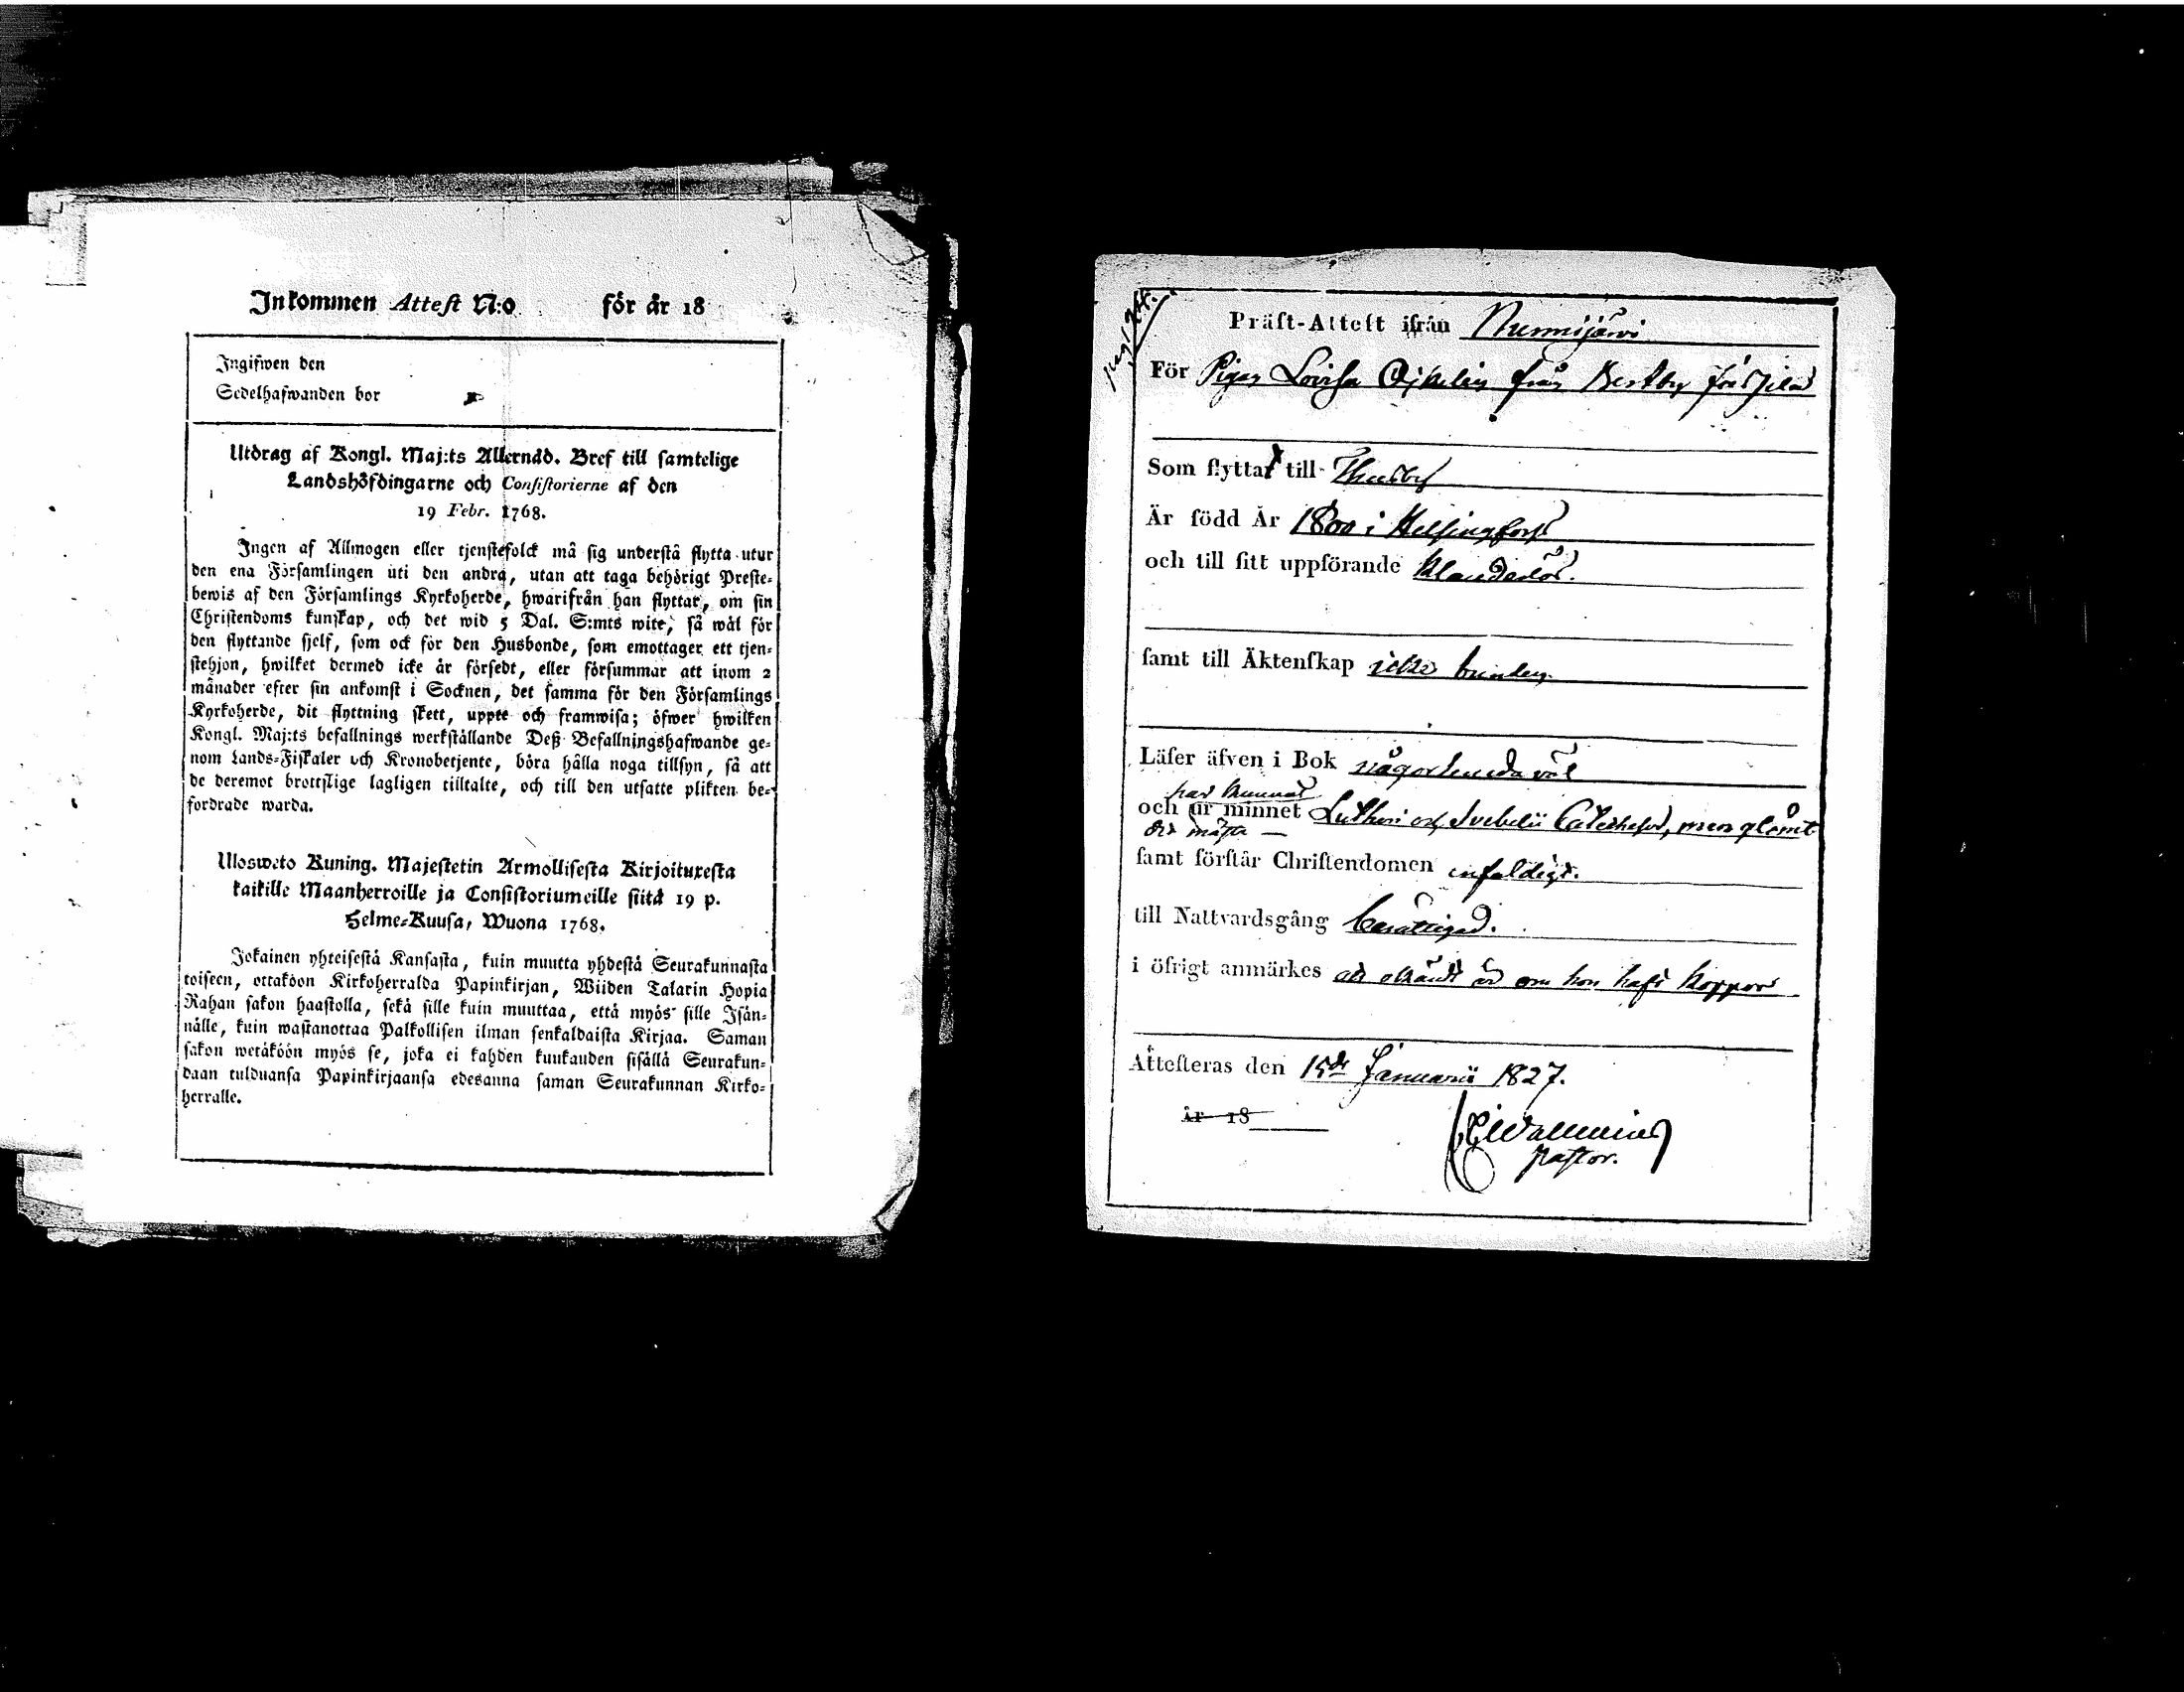 Inkommen Attest N:o för år 18
Ingifwen den
Sedelhafwanden bor
Utdrag af Kongl. Maj:ts Allernåd. Bref till samtelige
Landshöfdingarne och Consistorierne af den
19 Febr. 1768.
Ingen af Allmogen eller tjenstefolck må sig understå flytta utur
den ena Församlingen uti den andra, utan att taga behörigt Preste-
bewis af den Församlings Kyrkoherde, hwarifrån han flyttar, om sin
Christendoms kunskap, och det wid 5 Dal. S:mts wite, så wäl för
den flyttande sjelf, som ock för den Husbonde, som emottager ett tjen-
stehjon, hwilket dermed icke är försedt, eller försummar att inom 2
månader efter sin ankomst i Socknen, det samma för den Församlings
Kyrkoherde, dit flyttning skett, uppte och framwisa; öfwer hwilken
Kongl. Maj:ts befallnings werkställande Deß Befallningshafwande ge-
nom Lands-Fiskaler och Kronobetjente, böra hålla noga tillsyn, så att
de deremot brottslige lagligen tilltalte, och till den utsatte plikten be-
fordrade warda.
Ulosweto Kuning. Majestetin Armollisesta Kirjoituxesta
kaikille Maanherroille ja Consistoriumeille siitä 19 p.
Helme-Kuusa, Wuona 1768.
Jokainen yhteisestä Kansasta, kuin muutta yhdestä Seurakunnasta
toiseen, ottakoon Kirkoherralda Papinkirjan, Wiiden Talarin Hopia
Rahan sakon haastolla, sekä sille kuin muuttaa, että myös sille Isän-
nälle, kuin wastanottaa Palkollisen ilman senkaldaista Kirjaa. Saman
sakon wetäköön myös se, joka ei kahden kuukauden sisällä Seurakun-
daan tulduansa Papinkirjaansa edesanna saman Seurakunnan Kirko-
herralle.
Präst-Attest ifrån Nurmijärvi
För Pigan Lovisa från
Som flyttar till Thusby
Är född År 1800 i Helsingfors
och till sitt uppförande klanderlös.
samt till Äktenskap icke bunden.
Läser äfven i Bok någorlunda väl
har kunnat
och ur minnet Lutheri och Svebelii Cateches, men glömt
det mästa —
samt förstår Christendomen enfaldigt.
till Nattvardsgång berättigad.
i öfrigt anmärkes att okändt är om hon haft koppor
Attesteras den 15de Januarii 1827.
år 18
Pastor.